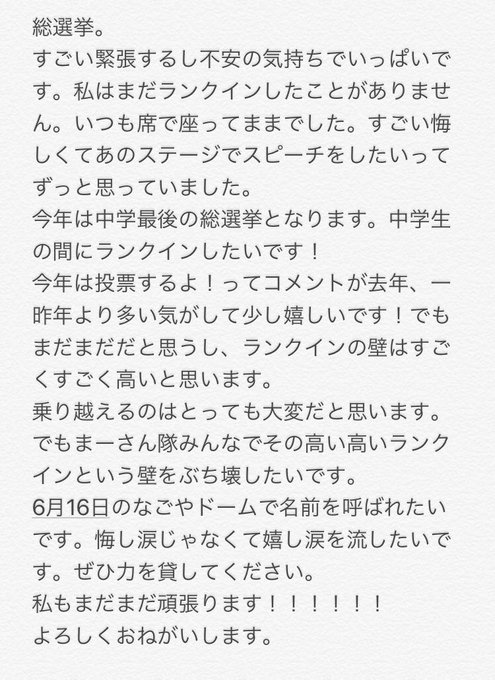 総選挙。
すごい緊張するし不安の気持ちでいっぱいで
す。私はまだランクインしたことがありませ
ん。いつも席で座ってままでした。すごい悔
しくてあのステージでスピーチをしたいって
ずっと思っていました。
今年は中学最後の総選挙となります。中学生
の間にランクインしたいです！
今年は投票するよ！ってコメントが去年、一
昨年より多い気がして少し嬉しいです！でも
まだまだだと思うし、ランクインの壁はすご
くすごく高いと思います。
乗り越えるのはとっても大変だと思います。
でもまーさん隊みんなでその高い高いランク
インという壁をぶち壊したいです。
6月16日のなごやドームで名前を呼ばれたい
です。悔し涙じゃなくて嬉し涙を流したいで
す。ぜひ力を貸してください。
私もまだまだ頑張ります！！！！！！
よろしくおねがいします。